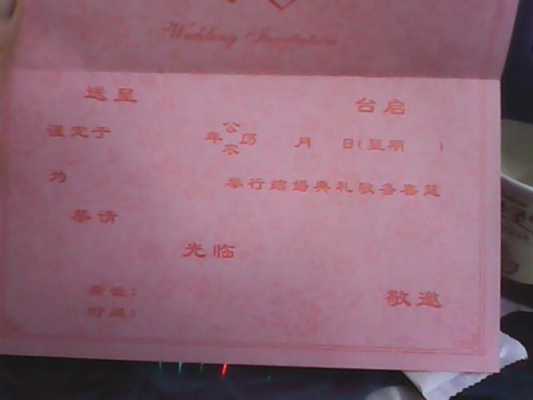 Wedding Invitation
送呈 台启
谨定于 年 公历 农 月 日(星期 )
为 举行结婚典礼敬备喜筵
恭请
光临
席设:
时间: 敬邀